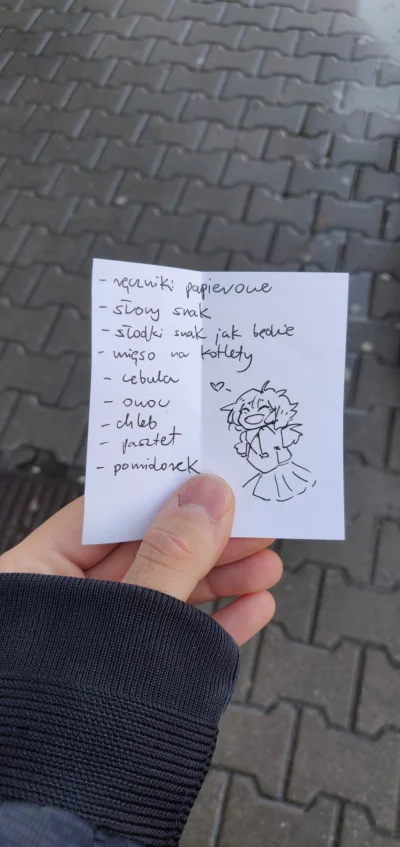 - ręczniki papierowe
- słony snak
- słodki snak jak będzie
- mięso na kotlety
- cebula
- owoc
- chleb
- pasztet
- pomidorek